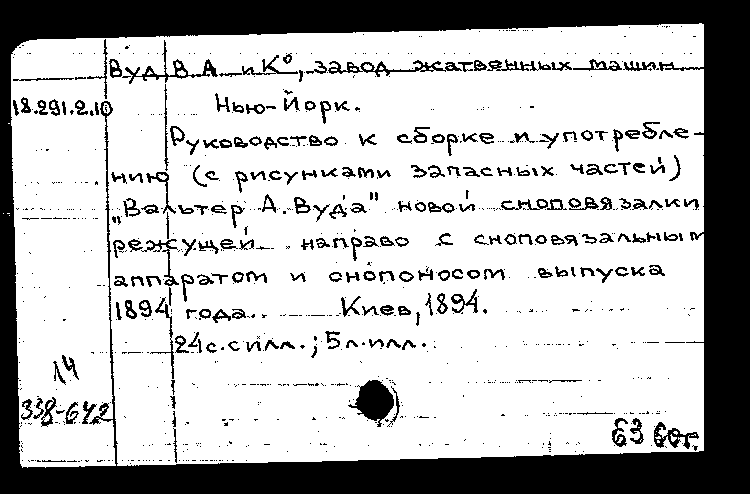 Вуд, В. А и К°, завод жатвенных машин.
18.291.2.10
Нью-Йорк.
Руководство к сборке и употребле-
нию (с рисунками запасных частей)
„Вальтер А. Вуда" новой сноповязалки
режущей направо с сноповязальным
аппаратом и снопоносом выпуска
1894 года. Киев, 1894.
24 с. с илл.; 5 л. илл.
14
338-642
63